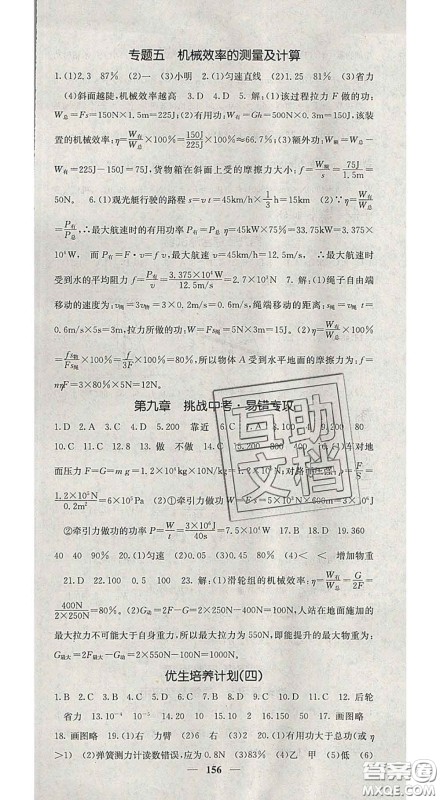 专题五　机械效率的测量及计算
1.(1)2.3　87%　(2)一　(3)小明　2.(1)匀速直线　(2)1.25　81%　(3)省力
(4)斜面越陡,机械效率越高　3.D　4.D　5.解:(1)该过程拉力F做的功:
W总=Fs=150N×1.5m=225J;(2)有用功:W有=Gh=500N×0.3m=150J,该装
置的机械效率:η=W有/W总×100%=150J/225J×100%≈66.7%;(3)额外功:W额=W总
-W有=225J-150J=75J,货物箱在斜面上受的摩擦力大小:f=W额/s=75J/1.5m=
50N。　6.(1)观光艇行驶的路程s=vt=45km/h×1/3h=15km　(2)∵η=W有/W总
=P有/P总,∴最大航速时的有用功率P有=P总η=45kW×75%=33.75kW=3.375×
10⁴W　而P=F·v=fv,最大航速v=45km/h=12.5m/s,∴最大航速时
受到水的平均阻力f=P有/v=3.375×10⁴W/12.5m/s=2.7×10³N　7.解:(1)绳子自由端
移动的速度为:v绳=3v物=3×0.2m/s=0.6m/s,绳端移动的距离:s绳=v绳t=
0.6m/s×5s=3m,拉力所做的功:W=Fs绳=5N×3m=15J　(2)η=W有/W总×100%=
fs物/Fs绳×100%=f/3F×100%,所以物体A受到水平地面的摩擦力为:f=
3ηF=3×80%×5N=12N。
第九章　挑战中考·易错专攻
1.D　2.A　3.C　4.D　5.200　靠近　6.C　7.A　8.
80　10.C　11.C　12.B　13.做　不做　14.B
地面压力F=G=mg=1.2×10⁴kg×10N/kg=1.2×10⁵N
1.2×10⁵N/0.2m²=6×10⁵Pa　(2)①牵引力做的功W=Fs=5×10³N×600m=3×10⁶J
②牵引力做功的功率P=W/t=3×10⁶J/40s=7.5×10⁴W　17.B　18.D　19.360
40　40　90%　20.(1)匀速　(2)0.4　83.3%　(4)<　<　增加物重
21.D　22.100　0.5　23.C　24.100　25.解:(1)滑轮组的机械效率:η=W有/W总=G/2F=
400N/2×250N=80%;(2)G动=2F-G=2×250N-400N=100N,人站在地面施加的
最大拉力不可能大于自身重力,所以最大拉力为550N,即能提升的最大物重为:
G最大=2F最大-G动=2×550N-100N=1000N。
优生培养计划(四)
1.B　2.C　3.A　4.B　5.B　6.B　7.D　8.D　9.C　10.C　11.C　12.后轮
省力　13.10⁻⁴　10⁻⁴　14.3　90%　15.0.5　1　16.画图略　17.画图略
18.画图略　19.(1)右　力臂　(2)6　右　20.(1)有用功大于总功(或η
>1)　(2)弹簧测力计读数错误,应为0.8N(3)83%　(4)乙　甲　(5)低　(6)
156
互助
文档
答案圈
MXQE.COM